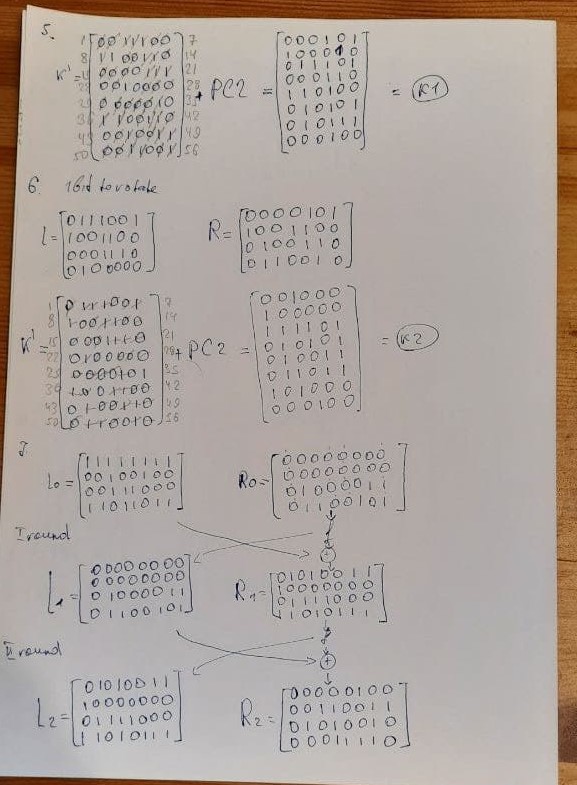 5.
1 0011100 7
8 1100110 14
K' = 0000111 21
0010000 28 + PC2 =
0000010 35
42
0010011 49
50 0011001 56
000101
100001
011101
000110
110100
010101
010111
000100
= K1
6. 1 bit to rotate
L =
0111001
1001100
0001110
0100000
R =
0000101
1001100
0100110
0110010
1 0111001 7
8 1001100 14
K' = 15 0001110 21
22 0100000 28 + PC2 =
29 0000101 35
36 1001100 42
43 0100110 49
50 0110010 56
001000
100000
111101
010101
010011
011011
101000
000100
= K2
L0 =
1111111
00100100
00111000
11011011
R0 =
00000000
00000000
01000011
01100101
I round
L1 =
00000000
00000000
01000011
01100101
R1 =
01010011
10000000
01111000
11010111
II round
L2 =
01010011
10000000
01111000
11010111
R2 =
00000100
00110011
01010010
00011110